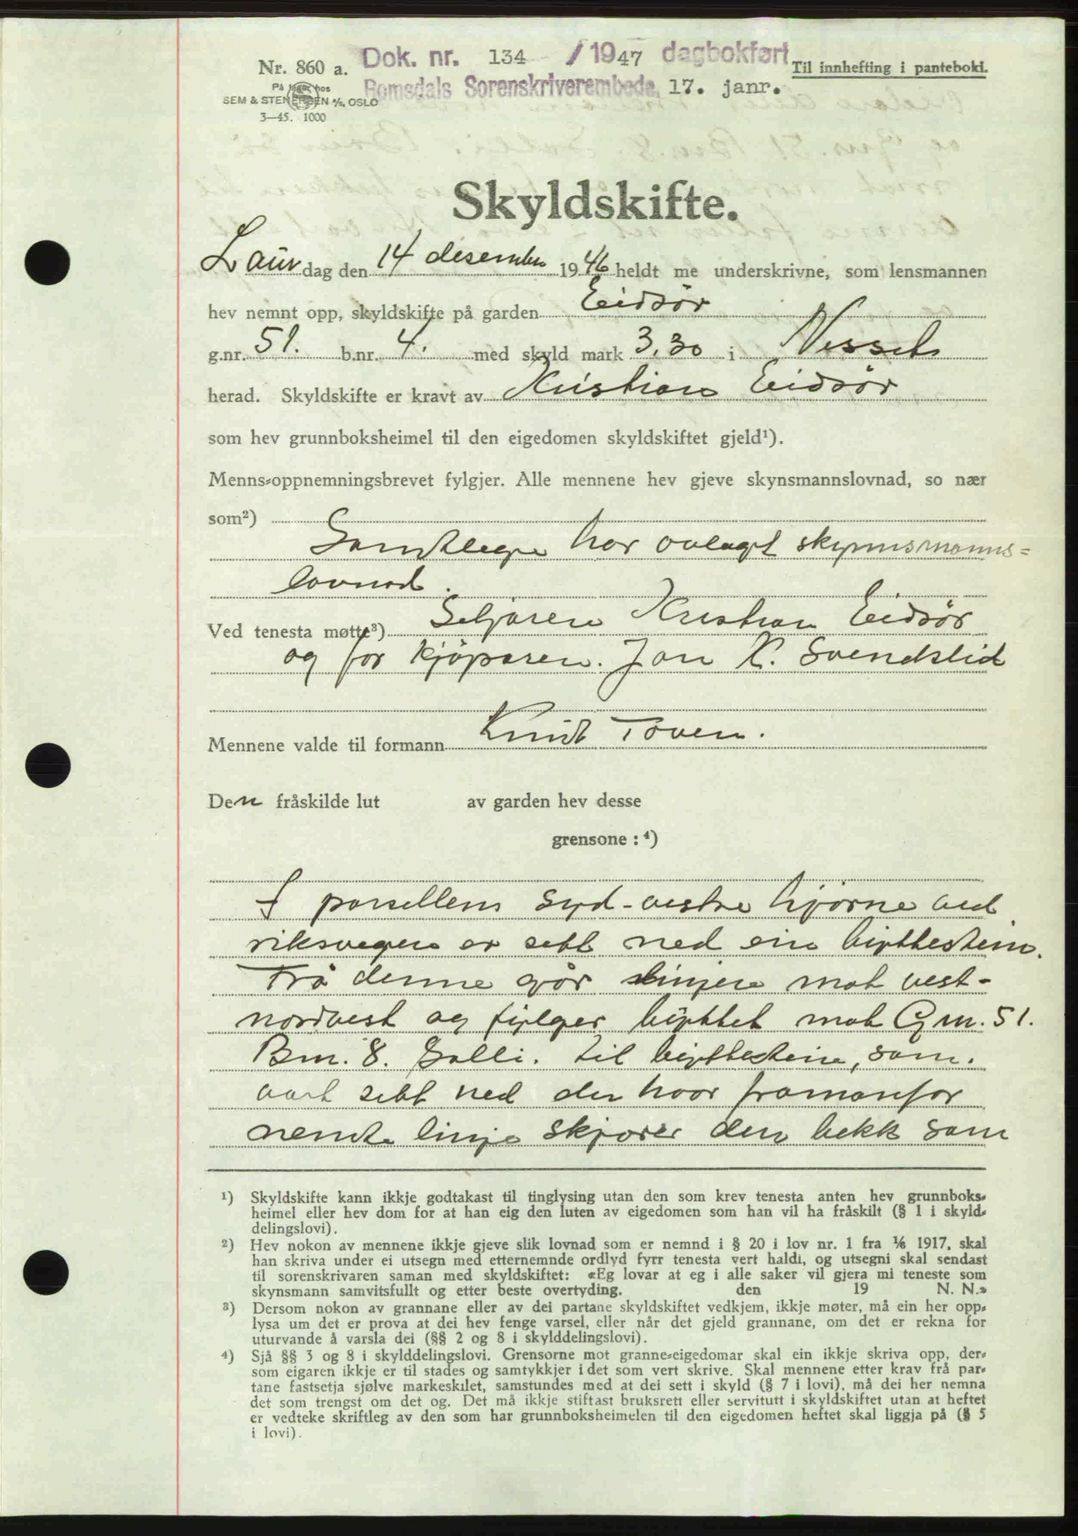 Dok. nr. 134 / 1947 dagbokført
Nr. 860 a.
Til innhefting i pantebok.
Romsdals Sorenskriverembede, 17. janr.
På lager hos
SEM & STENERSEN A/S, OSLO
3—45. 1000
Skyldskifte.
Laurdag den 14 desember 1946 heldt me underskrivne, som lensmannen
hev nemnt opp, skyldskifte på garden Eidsør
g.nr. 51. b.nr. 4. med skyld mark 3,30 i Nesset
herad. Skyldskifte er kravt av Kristian Eidsør
som hev grunnboksheimel til den eigedomen skyldskiftet gjeld¹).
Menns-oppnemningsbrevet fylgjer. Alle mennene hev gjeve skynsmannslovnad, so nær
som²)
Samtlege har avlagt skynnsmanns-
lovnad.
Ved tenesta møtte³) Seljaren Kristian Eidsør
og for kjøparen. Jon K. Svendslid
Mennene valde til formann Knut Toven.
Den fråskilde lut av garden hev desse
grensone: ⁴)
I parsellens syd-vestre hjørne ved
riksvegen er sett ned ein byttestein.
Frå denne går linjen mot vest-
nordvest og fylgjer byttet mot Gnr. 51.
Bnr. 8. Solli. til byttestein, som
vart sett ned der hvor framanfor
nemte linje skjærer den bekk som
¹) Skyldskifte kann ikkje godtakast til tinglysing utan den som krev tenesta anten hev grunnboks-
heimel eller hev dom for at han eig den luten av eigedomen som han vil ha fråskilt (§ 1 i skyld-
delingslovi).
²) Hev nokon av mennene ikkje gjeve slik lovnad som er nemnd i § 20 i lov nr. 1 fra 1/6 1917, skal
han skriva under ei utsegn med etternemnde ordlyd fyrr tenesta vert haldi, og utsegni skal sendast
til sorenskrivaren saman med skyldskiftet: «Eg lovar at eg i alle saker vil gjera mi teneste som
skynsmann samvitsfullt og etter beste overtyding. den 19 N. N.»
³) Dersom nokon av grannane eller av dei partane skyldskiftet vedkjem, ikkje møter, må ein her opp-
lysa um det er prova at dei hev fenge varsel, eller når det gjeld grannane, om det er rekna for
uturvande å varsla dei (§§ 2 og 8 i skylddelingslovi).
⁴) Sjå §§ 3 og 8 i skylddelingslovi. Grensorne mot granne-eigedomar skal ein ikkje skriva opp, der-
som eigaren ikkje er til stades og samtykkjer i det som vert skrive. Skal mennene etter krav frå par-
tane fastsetja sjølve markeskilet, samstundes med at dei sett i skyld (§ 7 i lovi), må dei her nemna
det som trengst om det og. Det må ikkje stiftast bruksrett eller servitutt i skyldskiftet utan at heftet
er vedteke skriftleg av den som har grunnboksheimelen til den eigedomen heftet skal liggja på (§ 5
i lovi).